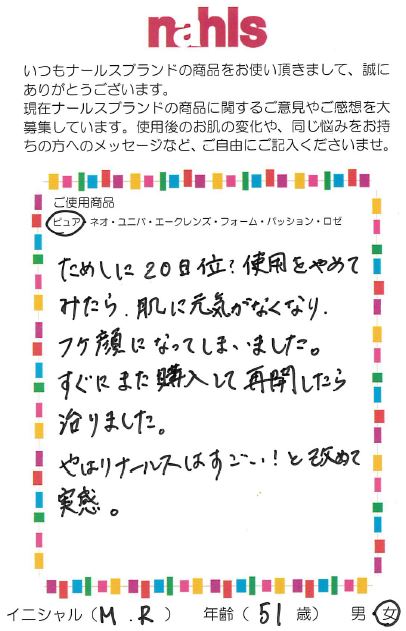 nahls
いつもナールスブランドの商品をお使い頂きまして、誠に
ありがとうございます。
現在ナールスブランドの商品に関するご意見やご感想を大
募集しています。使用後のお肌の変化や、同じ悩みをお持
ちの方へのメッセージなど、ご自由にご記入くださいませ。
ご使用商品
ピュア・ネオ・ユニバ・エークレンズ・フォーム・パッション・ロゼ
ためしに20日位？使用をやめて
みたら、肌に元気がなくなり、
フケ顔になってしまいました。
すぐにまた購入して再開したら
治りました。
やはりナールスはすごい！と改めて
実感。
イニシャル（M.R）　年齢（51歳）　男・女